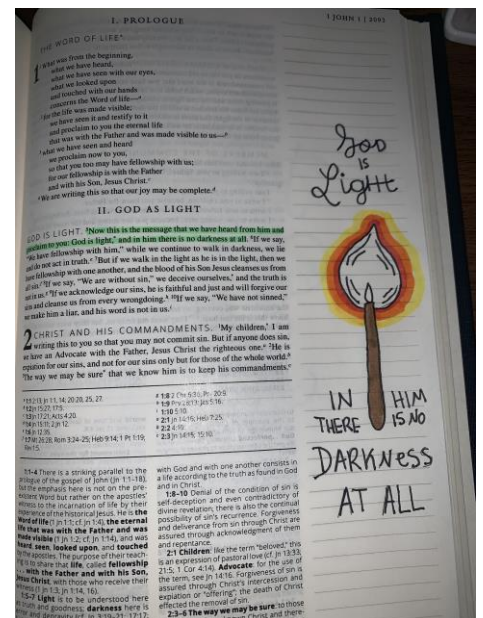 I. PROLOGUE
1 JOHN 1 | 2093
THE WORD OF LIFE
1 What was from the beginning,
what we have heard,
what we have seen with our eyes,
what we looked upon
and touched with our hands
concerns the Word of life—
for the life was made visible;
we have seen it and testify to it
and proclaim to you the eternal life
that was with the Father and was made visible to us—
what we have seen and heard
we proclaim now to you,
so that you too may have fellowship with us;
for our fellowship is with the Father
and with his Son, Jesus Christ.
We are writing this so that our joy may be complete.
II. GOD AS LIGHT
GOD IS LIGHT. 5Now this is the message that we have heard from him and
proclaim to you: God is light, and in him there is no darkness at all. 6If we say,
"We have fellowship with him," while we continue to walk in darkness, we lie
and do not act in truth. 7But if we walk in the light as he is in the light, then we
have fellowship with one another, and the blood of his Son Jesus cleanses us from
all sin. 8If we say, "We are without sin," we deceive ourselves, and the truth is
not in us. 9If we acknowledge our sins, he is faithful and just and will forgive our
sins and cleanse us from every wrongdoing. 10If we say, "We have not sinned,"
we make him a liar, and his word is not in us.
2 CHRIST AND HIS COMMANDMENTS. 1My children, I am
writing this to you so that you may not commit sin. But if anyone does sin,
we have an Advocate with the Father, Jesus Christ the righteous one. 2He is
expiation for our sins, and not for our sins only but for those of the whole world.
3The way we may be sure that we know him is to keep his commandments.
1:1–4 There is a striking parallel to the
prologue of the gospel of John (Jn 1:1–18),
but the emphasis here is not on the pre-
existent Word but rather on the apostles'
witness to the incarnation of life by their
experience of the historical Jesus. He is the
Word of life (1 Jn 1:1; cf. Jn 1:4), the eternal
life that was with the Father and was
made visible (1 Jn 1:2; cf. Jn 1:14), and was
heard, seen, looked upon, and touched
by the apostles. The purpose of their teach-
ing is to share that life, called fellowship
... with the Father and with his Son,
Jesus Christ, with those who receive their
witness (1 Jn 1:3; Jn 1:14, 16).
1:5–7 Light is to be understood here
as truth and goodness; darkness here is
with God and with one another consists in
a life according to the truth as found in God
and in Christ.
1:8–10 Denial of the condition of sin is
self-deception and even contradictory of
divine revelation; there is also the continual
possibility of sin's recurrence. Forgiveness
and deliverance from sin through Christ are
assured through acknowledgment of them
and repentance.
2:1 Children: like the term "beloved," this
is an expression of pastoral love (cf. Jn 13:33;
21:5; 1 Cor 4:14). Advocate: for the use of
the term, see Jn 14:16. Forgiveness of sin is
assured through Christ's intercession and
expiation or "offering"; the death of Christ
effected the removal of sin.
2:3–6 The way we may be sure: to those
God
is
Light
IN HIM
THERE IS NO
DARKNESS
AT ALL